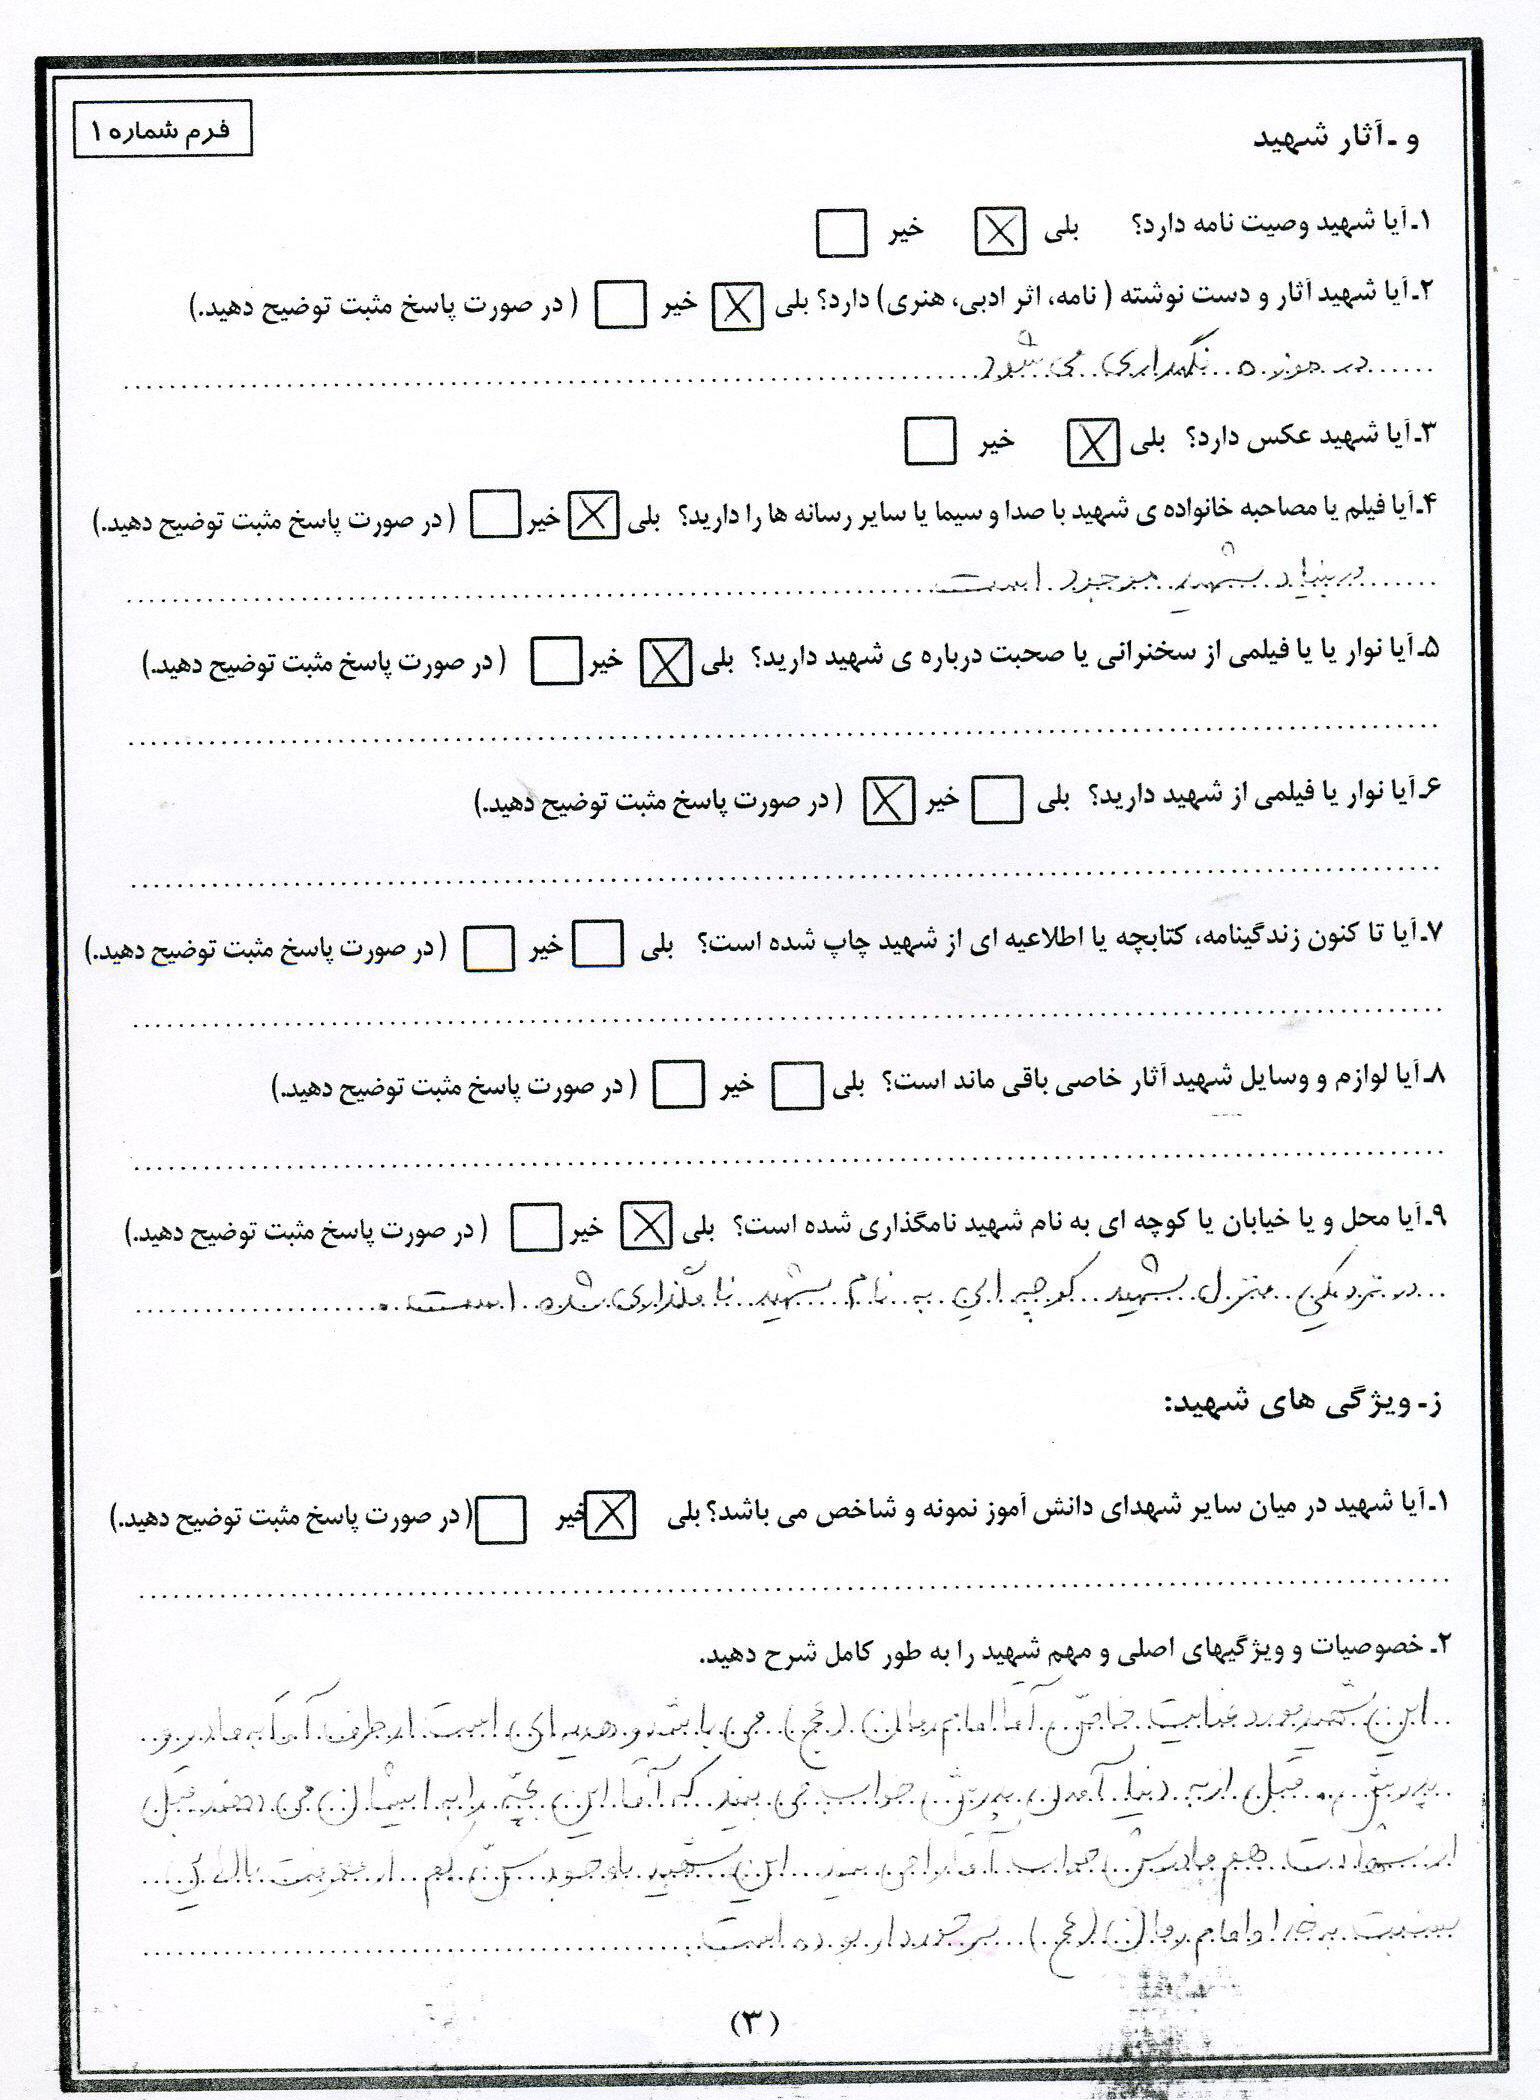 فرم شماره ۱
و ـ آثار شهید
۱ـ آیا شهید وصیت نامه دارد؟ بلی ☒ خیر ☐
۲ـ آیا شهید آثار و دست نوشته ( نامه، اثر ادبی، هنری) دارد؟ بلی ☒ خیر ☐ ( در صورت پاسخ مثبت توضیح دهید.)
در موزه نگهداری می شود
۳ـ آیا شهید عکس دارد؟ بلی ☒ خیر ☐
۴ـ آیا فیلم یا مصاحبه خانواده ی شهید با صدا و سیما یا سایر رسانه ها را دارید؟ بلی ☒ خیر ☐ ( در صورت پاسخ مثبت توضیح دهید.)
در بنیاد شهید موجود است
۵ـ آیا نوار یا یا فیلمی از سخنرانی یا صحبت درباره ی شهید دارید؟ بلی ☒ خیر ☐ ( در صورت پاسخ مثبت توضیح دهید.)
۶ـ آیا نوار یا فیلمی از شهید دارید؟ بلی ☐ خیر ☒ ( در صورت پاسخ مثبت توضیح دهید.)
۷ـ آیا تا کنون زندگینامه، کتابچه یا اطلاعیه ای از شهید چاپ شده است؟ بلی ☐ خیر ☐ ( در صورت پاسخ مثبت توضیح دهید.)
۸ـ آیا لوازم و وسایل شهید آثار خاصی باقی ماند است؟ بلی ☐ خیر ☐ ( در صورت پاسخ مثبت توضیح دهید.)
۹ـ آیا محل و یا خیابان یا کوچه ای به نام شهید نامگذاری شده است؟ بلی ☒ خیر ☐ ( در صورت پاسخ مثبت توضیح دهید.)
در نزدیکی منزل شهید کوچه ایی به نام شهید نامگذاری شده است .
ز ـ ویژگی های شهید:
۱ـ آیا شهید در میان سایر شهدای دانش آموز نمونه و شاخص می باشد؟ بلی ☒ خیر ☐ ( در صورت پاسخ مثبت توضیح دهید.)
۲ـ خصوصیات و ویژگیهای اصلی و مهم شهید را به طور کامل شرح دهید.
این شهید مورد عنایت خاصّ آقا امام زمان (عج) می باشد و هدیه ای است از طرف آقا به مادر و
پدرش . قبل از به دنیا آمدن پدرش خواب می بیند که آقا این بچّه را به ایشان می دهند قبل
از شهادت هم مادرش خواب آقا را می بیند این شهید با وجود سنّ کم از معرفت بالایی
نسبت به خدا و امام زمان (عج) برخوردار بوده است
(۳)